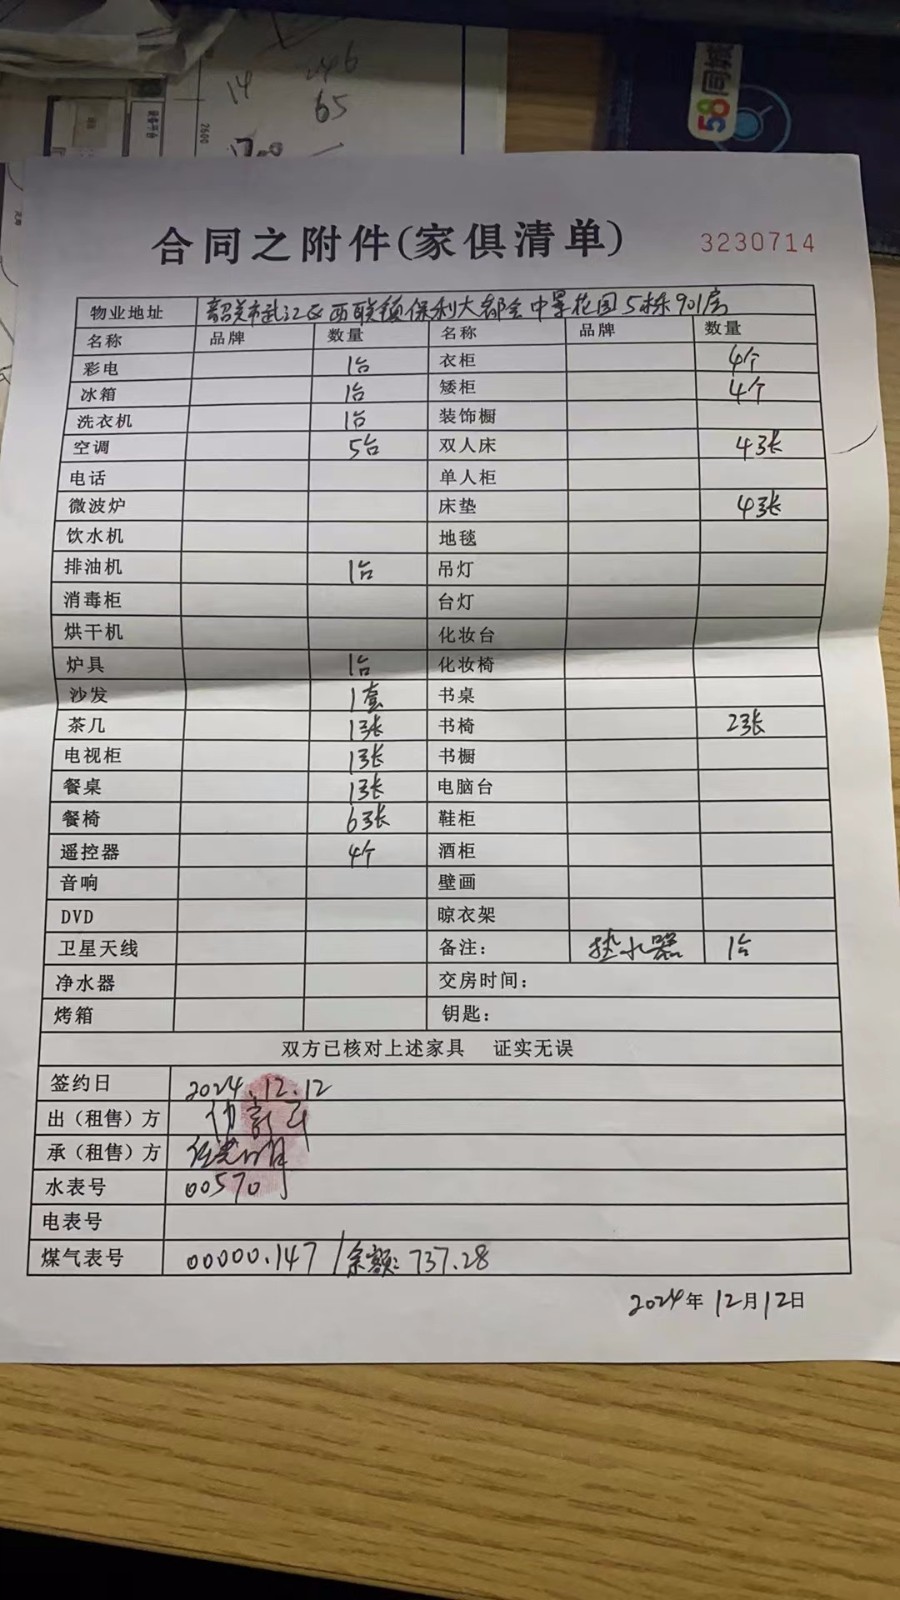 14 246
65
2600
设备平台
58同城
合同之附件(家俱清单) 3230714
物业地址 韶关市武江区西联镇保利大都会中景花园5栋901房
名称 品牌 数量 名称 品牌 数量
彩电 1台 衣柜 4个
冰箱 1台 矮柜 4个
洗衣机 1台 装饰橱
空调 5台 双人床 4张
电话 单人柜
微波炉 床垫 4张
饮水机 地毯
排油机 1台 吊灯
消毒柜 台灯
烘干机 化妆台
炉具 1台 化妆椅
沙发 1套 书桌
茶几 1张 书椅 2张
电视柜 1张 书橱
餐桌 1张 电脑台
餐椅 6张 鞋柜
遥控器 4个 酒柜
音响 壁画
DVD 晾衣架
卫星天线 备注: 热水器 1台
净水器 交房时间:
烤箱 钥匙:
双方已核对上述家具 证实无误
签约日 2024.12.12
出(租售)方
承(租售)方
水表号 00570
电表号
煤气表号 00000.147 / 余额: 737.28
2024年12月12日